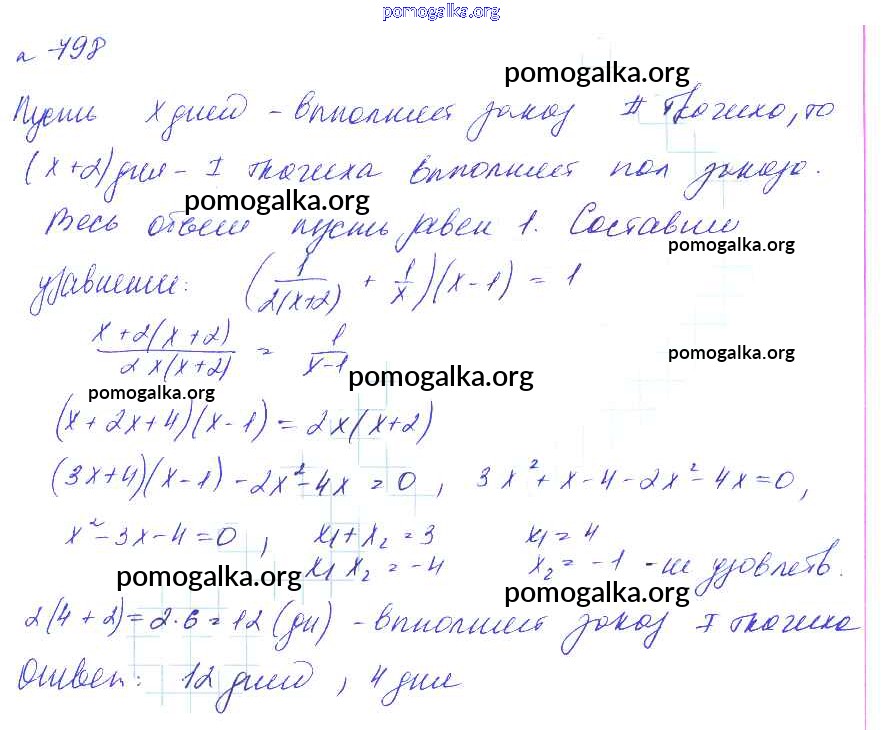 pomogalka.org
n 798
pomogalka.org
Пусть x дней - выполняет заказ II ткачиха, то
(x+2) дня - I ткачиха выполняет пол заказа.
pomogalka.org
Весь объем пусть равен 1. Составим
pomogalka.org
уравнение: (1/2(x+2) + 1/x)(x-1) = 1
x+2(x+2)/2x(x+2) = 1/x-1
pomogalka.org
pomogalka.org
pomogalka.org
(x+2x+4)(x-1) = 2x(x+2)
(3x+4)(x-1) - 2x² - 4x = 0, 3x² + x - 4 - 2x² - 4x = 0,
x² - 3x - 4 = 0, x₁ + x₂ = 3 x₁ = 4
x₁ x₂ = -4 x₂ = -1 - не удовлетв.
pomogalka.org
pomogalka.org
2(4+2) = 2·6 = 12 (дн) - выполняет заказ I ткачиха
Ответ: 12 дней, 4 дня